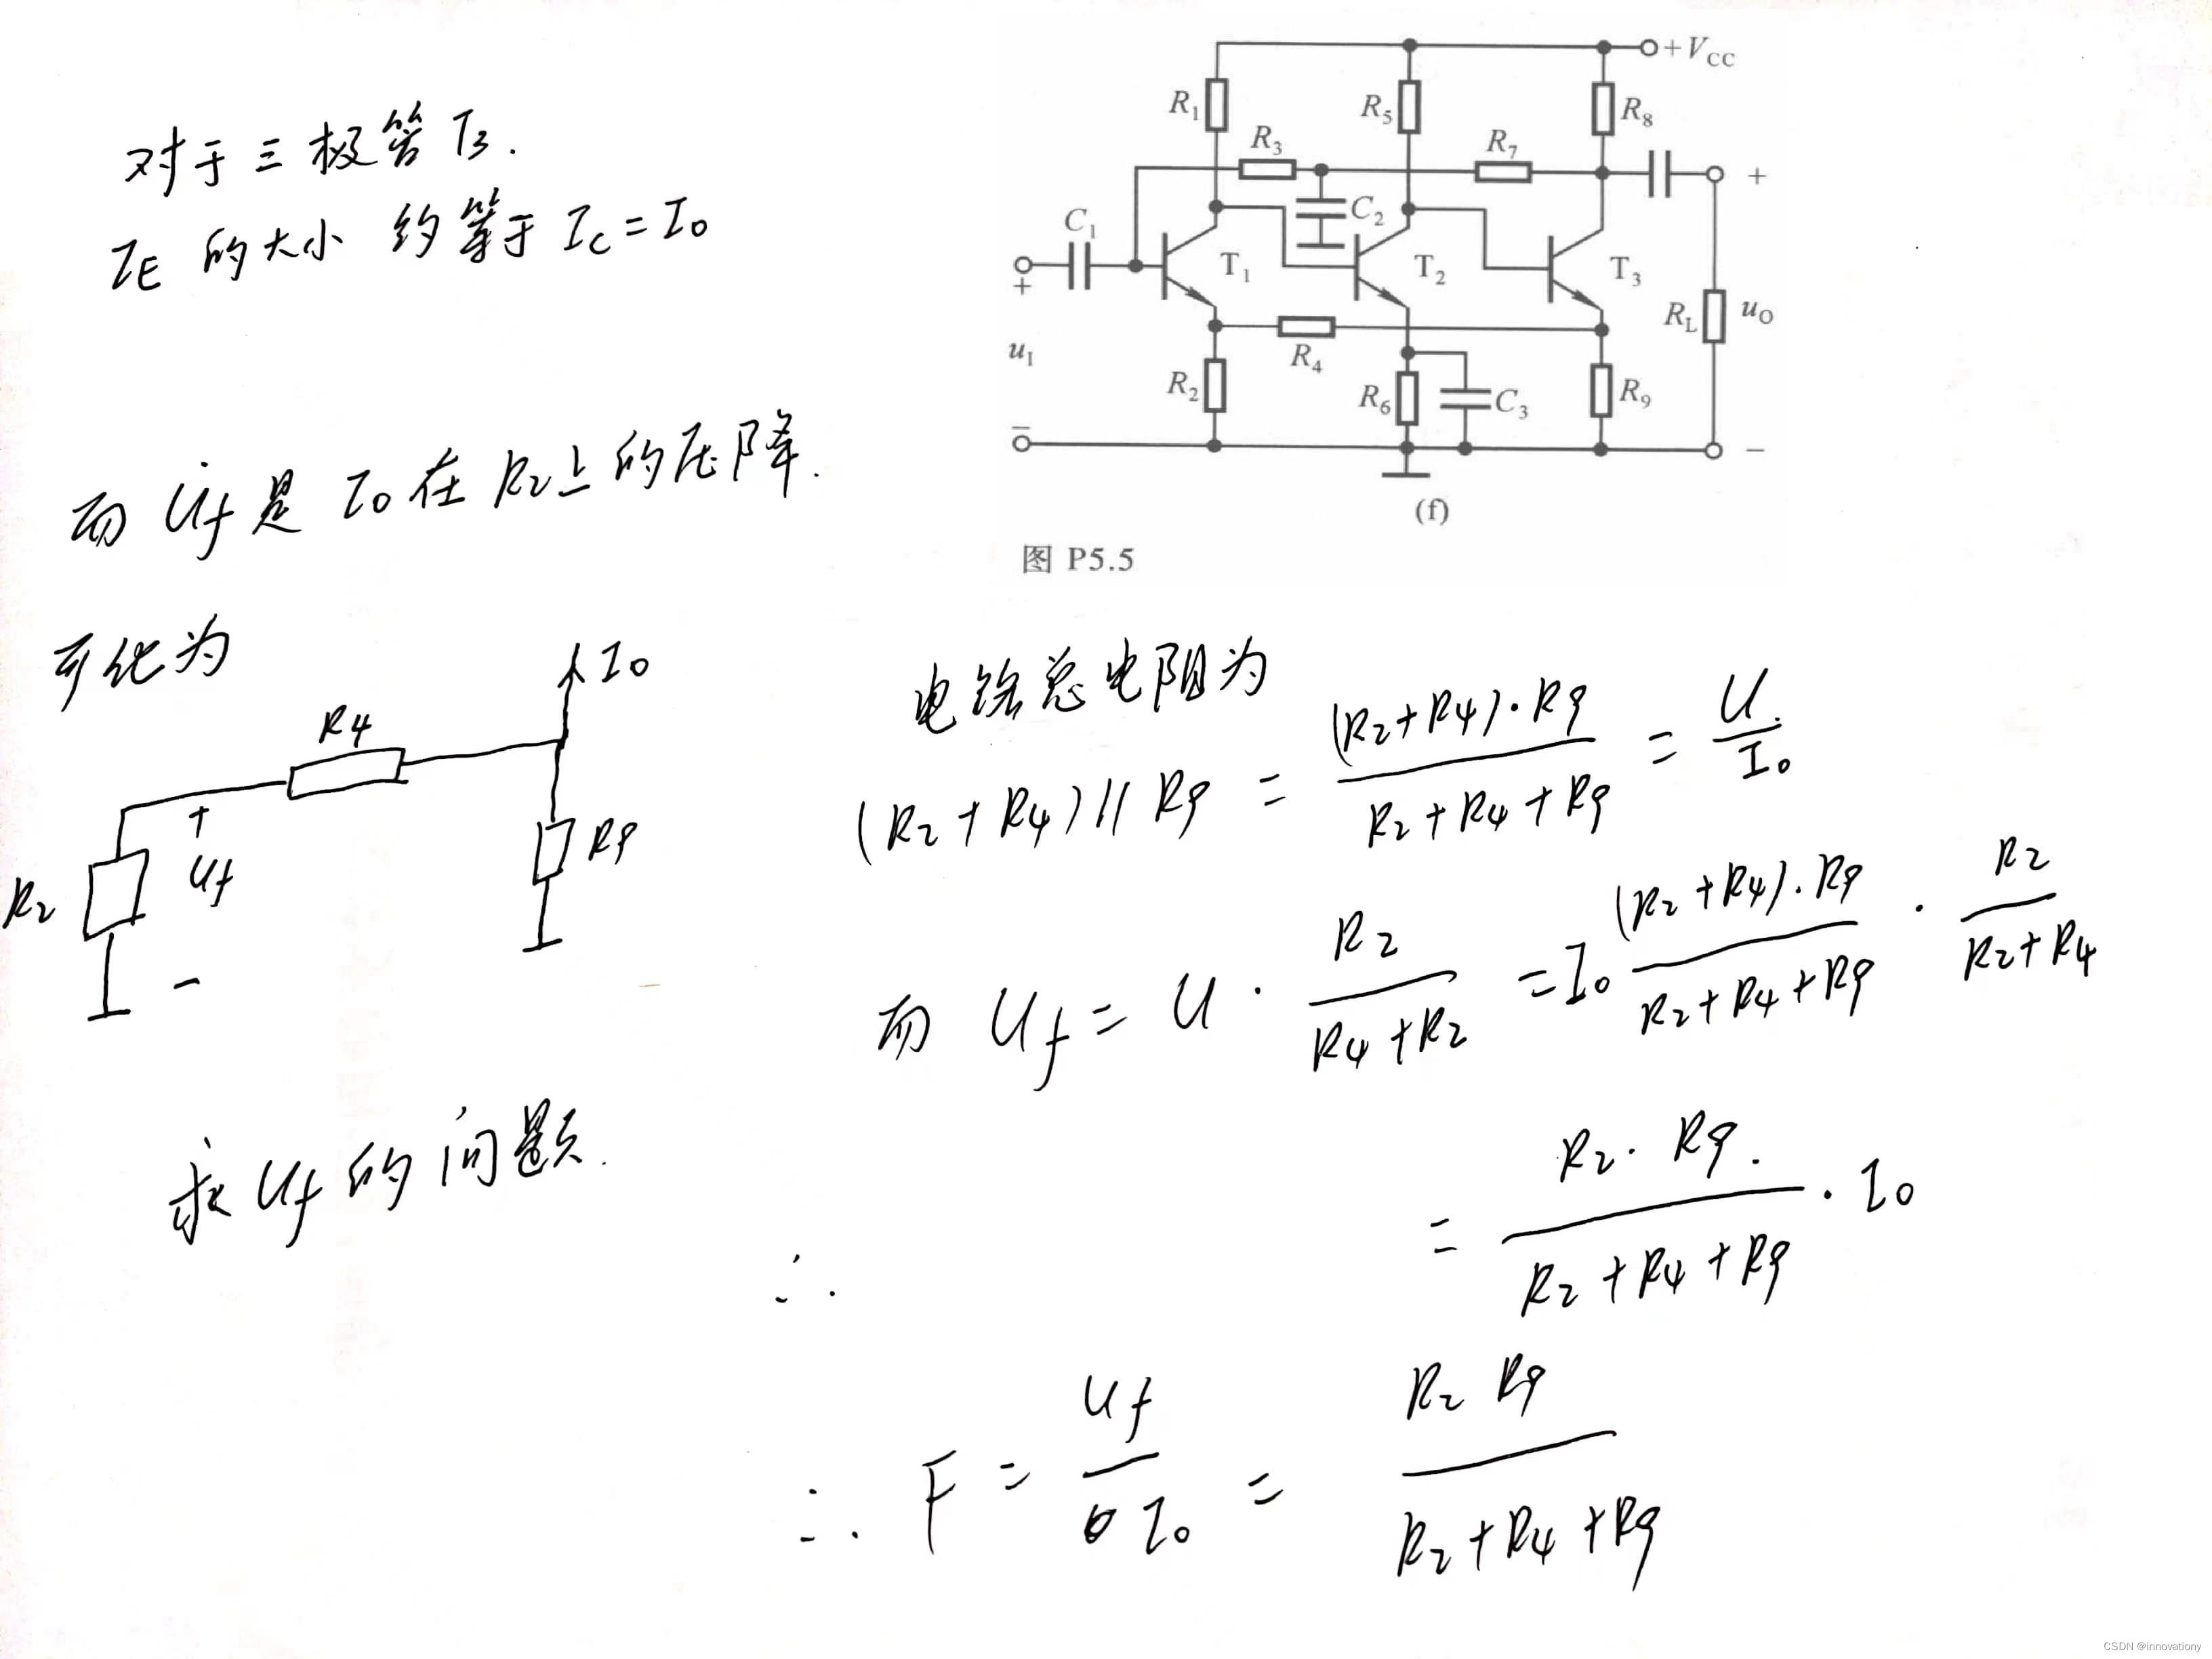 对于三极管T3.
IE的大小 约等于 IC=I0
而Uf是I0在R2上的压降.
+VCC
R1
R5
R8
R3
R7
C2
+
C1
T1
T2
T3
+
RL
uO
uI
R4
R2
R6
C3
R9
−
−
(f)
图 P5.5
可化为
I0
R4
+
Uf
R9
R2
−
求Uf的问题.
电路总电阻为
(R2+R4)//R9 = (R2+R4)·R9 / R2+R4+R9 = U / I0
而 Uf = U · R2 / R4+R2 = I0 (R2+R4)·R9 / R2+R4+R9 · R2 / R2+R4
= R2·R9 / R2+R4+R9 · I0
∴
∴ F = Uf / I0 = R2 R9 / R2+R4+R9
CSDN @innovationy